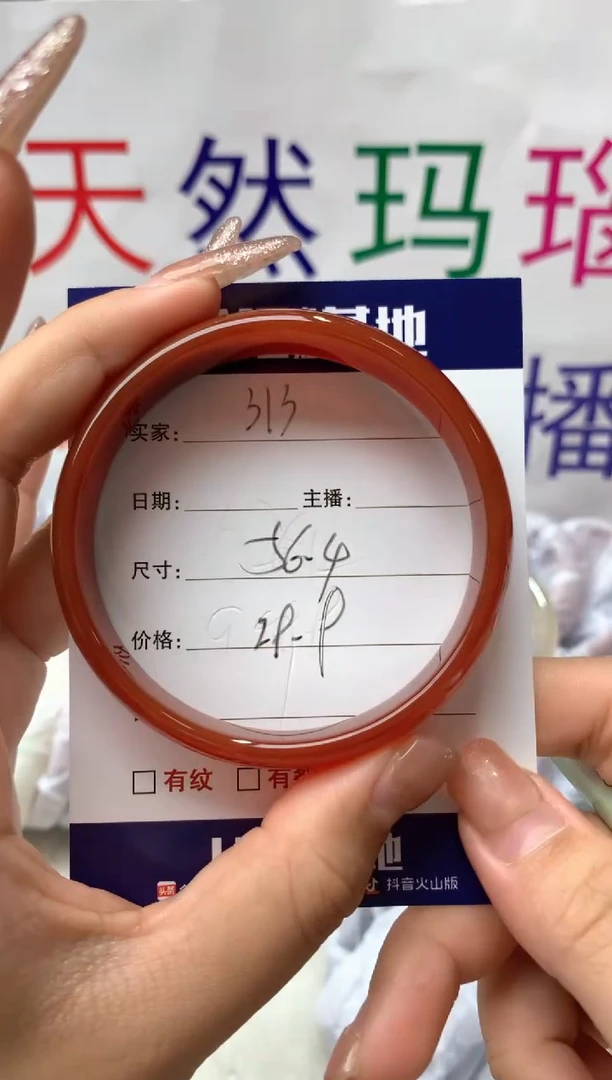 天然玛瑙
播
基地
买家: 313
日期: 主播:
尺寸: 56-4
价格:
有纹 有
地
头条 抖音火山版